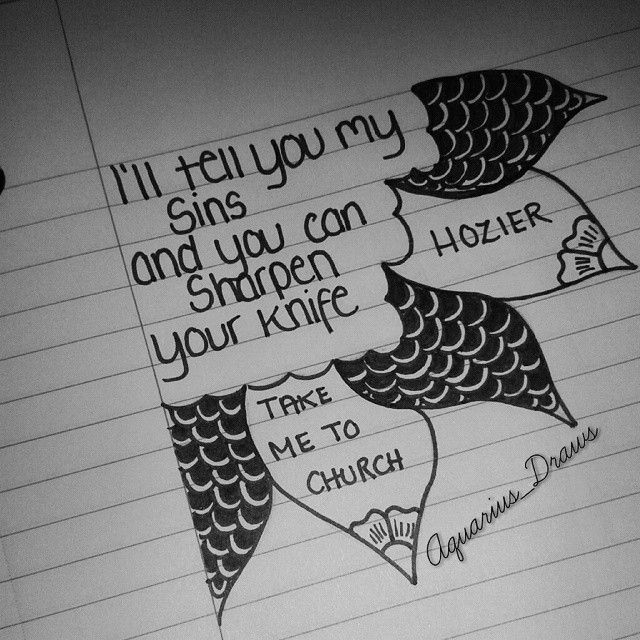 I'll tell you my
Sins
and you can
Sharpen
your knife
HOZIER
TAKE
ME TO
CHURCH
Aquarius_Draws